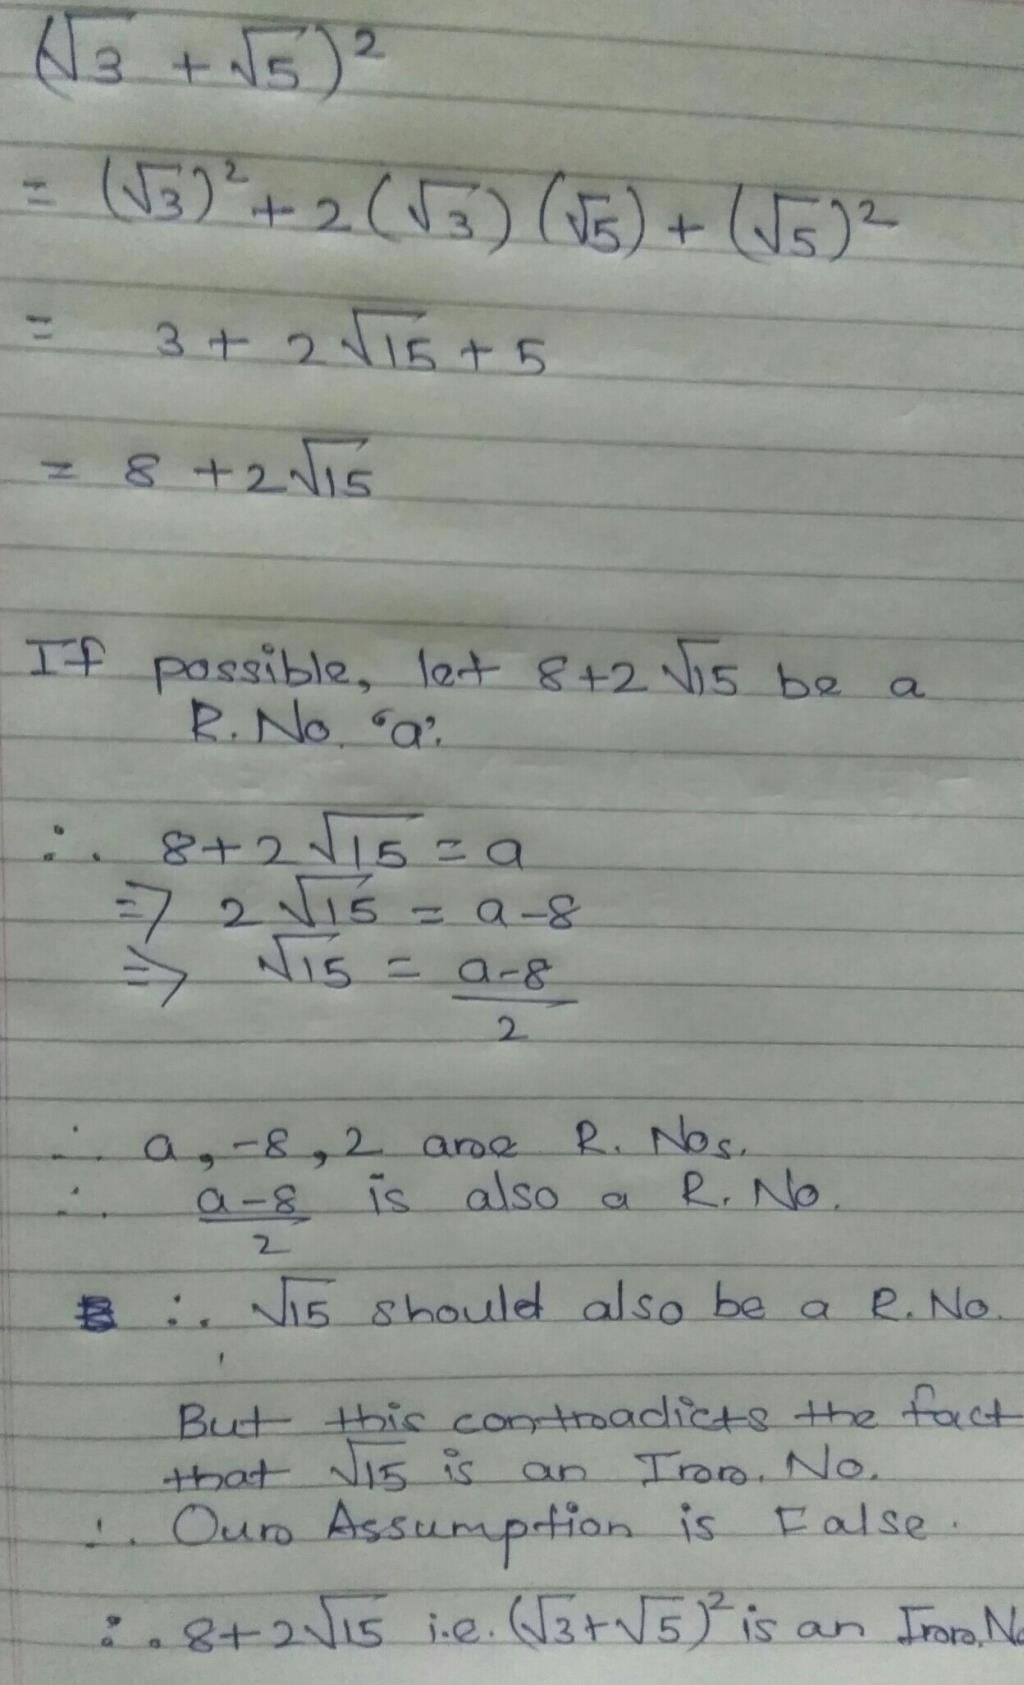 (√3 + √5)²
= (√3)² + 2(√3)(√5) + (√5)²
= 3 + 2√15 + 5
= 8 + 2√15
If possible, let 8+2√15 be a
R. No. "a".
∴ 8+2√15 = a
⇒ 2√15 = a-8
⇒ √15 = a-8
2
∴ a, -8, 2 are R. Nos.
∴ a-8 is also a R. No.
2
∴ √15 should also be a R. No.
But this contradicts the fact
that √15 is an Irr. No.
∴ Our Assumption is False.
∴ 8+2√15 i.e. (√3+√5)² is an Irr. No